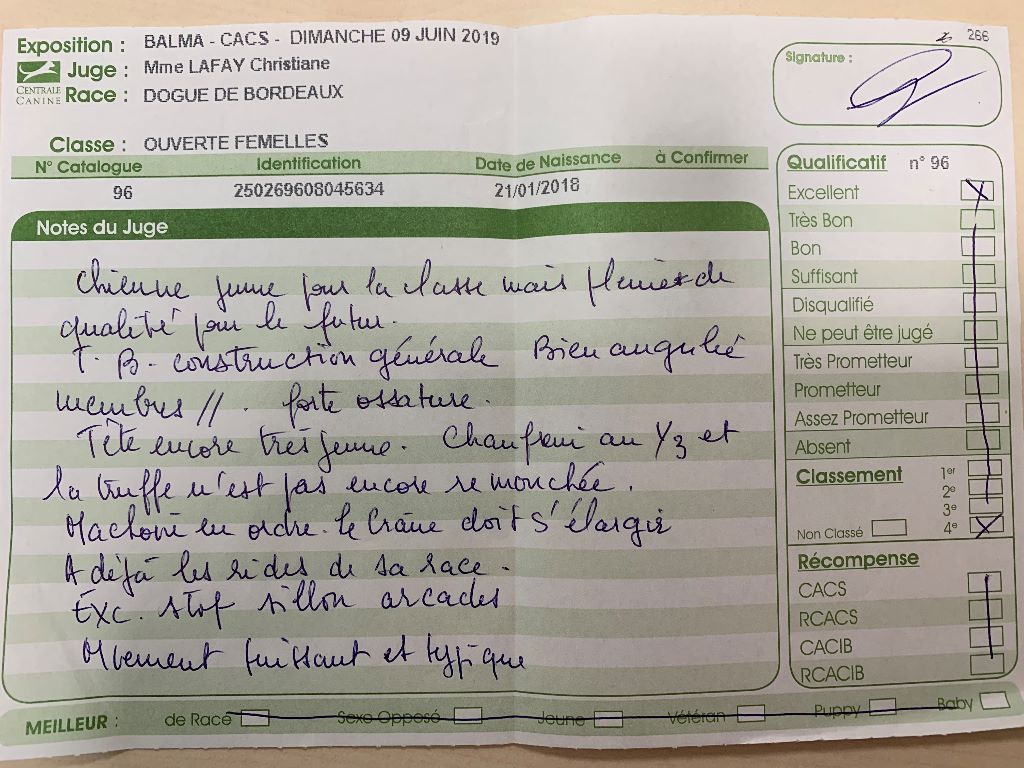 Exposition : BALMA - CACS - DIMANCHE 09 JUIN 2019
266
Juge : Mme LAFAY Christiane
CENTRALE CANINE
Race : DOGUE DE BORDEAUX
Signature :
Classe : OUVERTE FEMELLES
N° Catalogue Identification Date de Naissance à Confirmer
96 250269608045634 21/01/2018
Notes du Juge
Chienne jeune pour la classe mais pleine de
qualité pour le futur.
T. B. construction générale Bien angulé
membres //. forte ossature.
Tête encore très jeune. Chanfrein au 1/3 et
la truffe n'est pas encore remonchée.
Machoire en ordre. le Crâne doit s'élargir
A déjà les rides de sa race.
Exc. stop sillon arcades
Mvement puissant et typique
Qualificatif n° 96
Excellent X
Très Bon
Bon
Suffisant
Disqualifié
Ne peut être jugé
Très Prometteur
Prometteur
Assez Prometteur
Absent
Classement 1er
2e
3e
Non Classé 4e X
Récompense
CACS
RCACS
CACIB
RCACIB
MEILLEUR : de Race Sexe Opposé Jeune Vétéran Puppy Baby